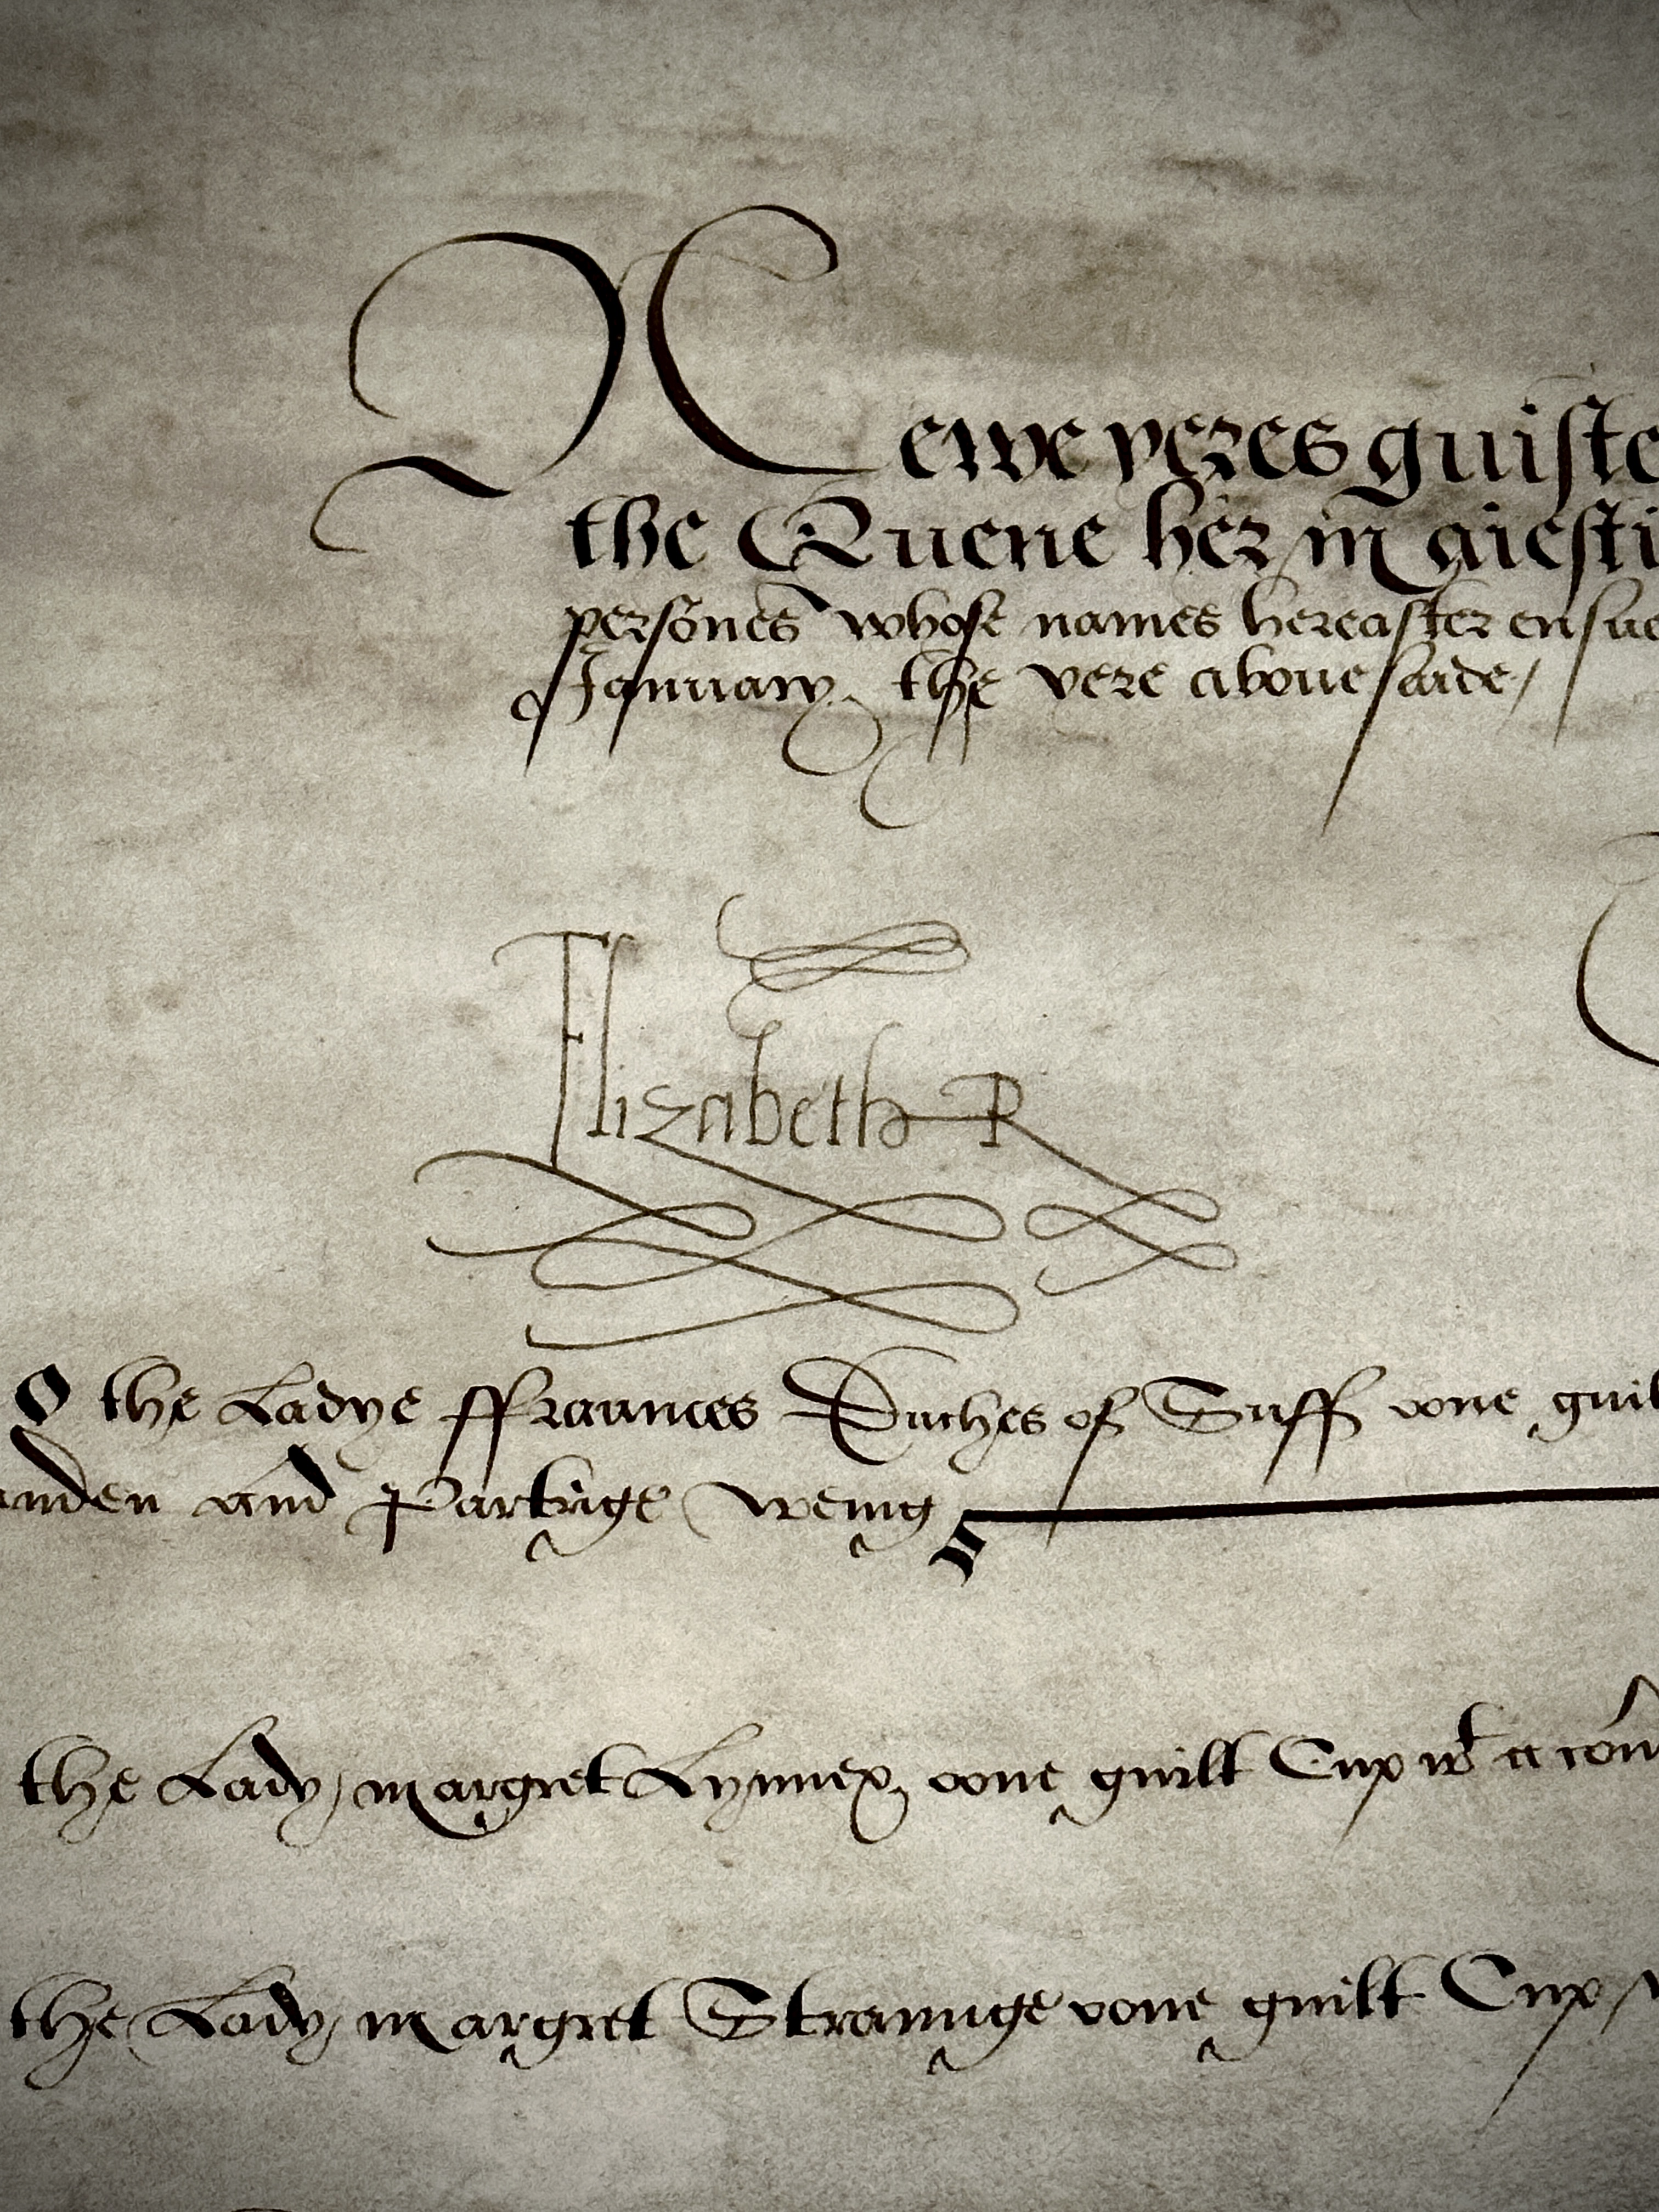 Newe yeres guifte
the Quene her maiesti
persones whose names hereafter ensue
January, the yere abouesaide,
Elizabeth R
the Ladye ffraunces Duches of Suff oone guil
nden and Partrige weing
the Lady Margret Lynnex, oone guilt Cup wt a cou
the Lady Margret Straunge oone guilt Cup